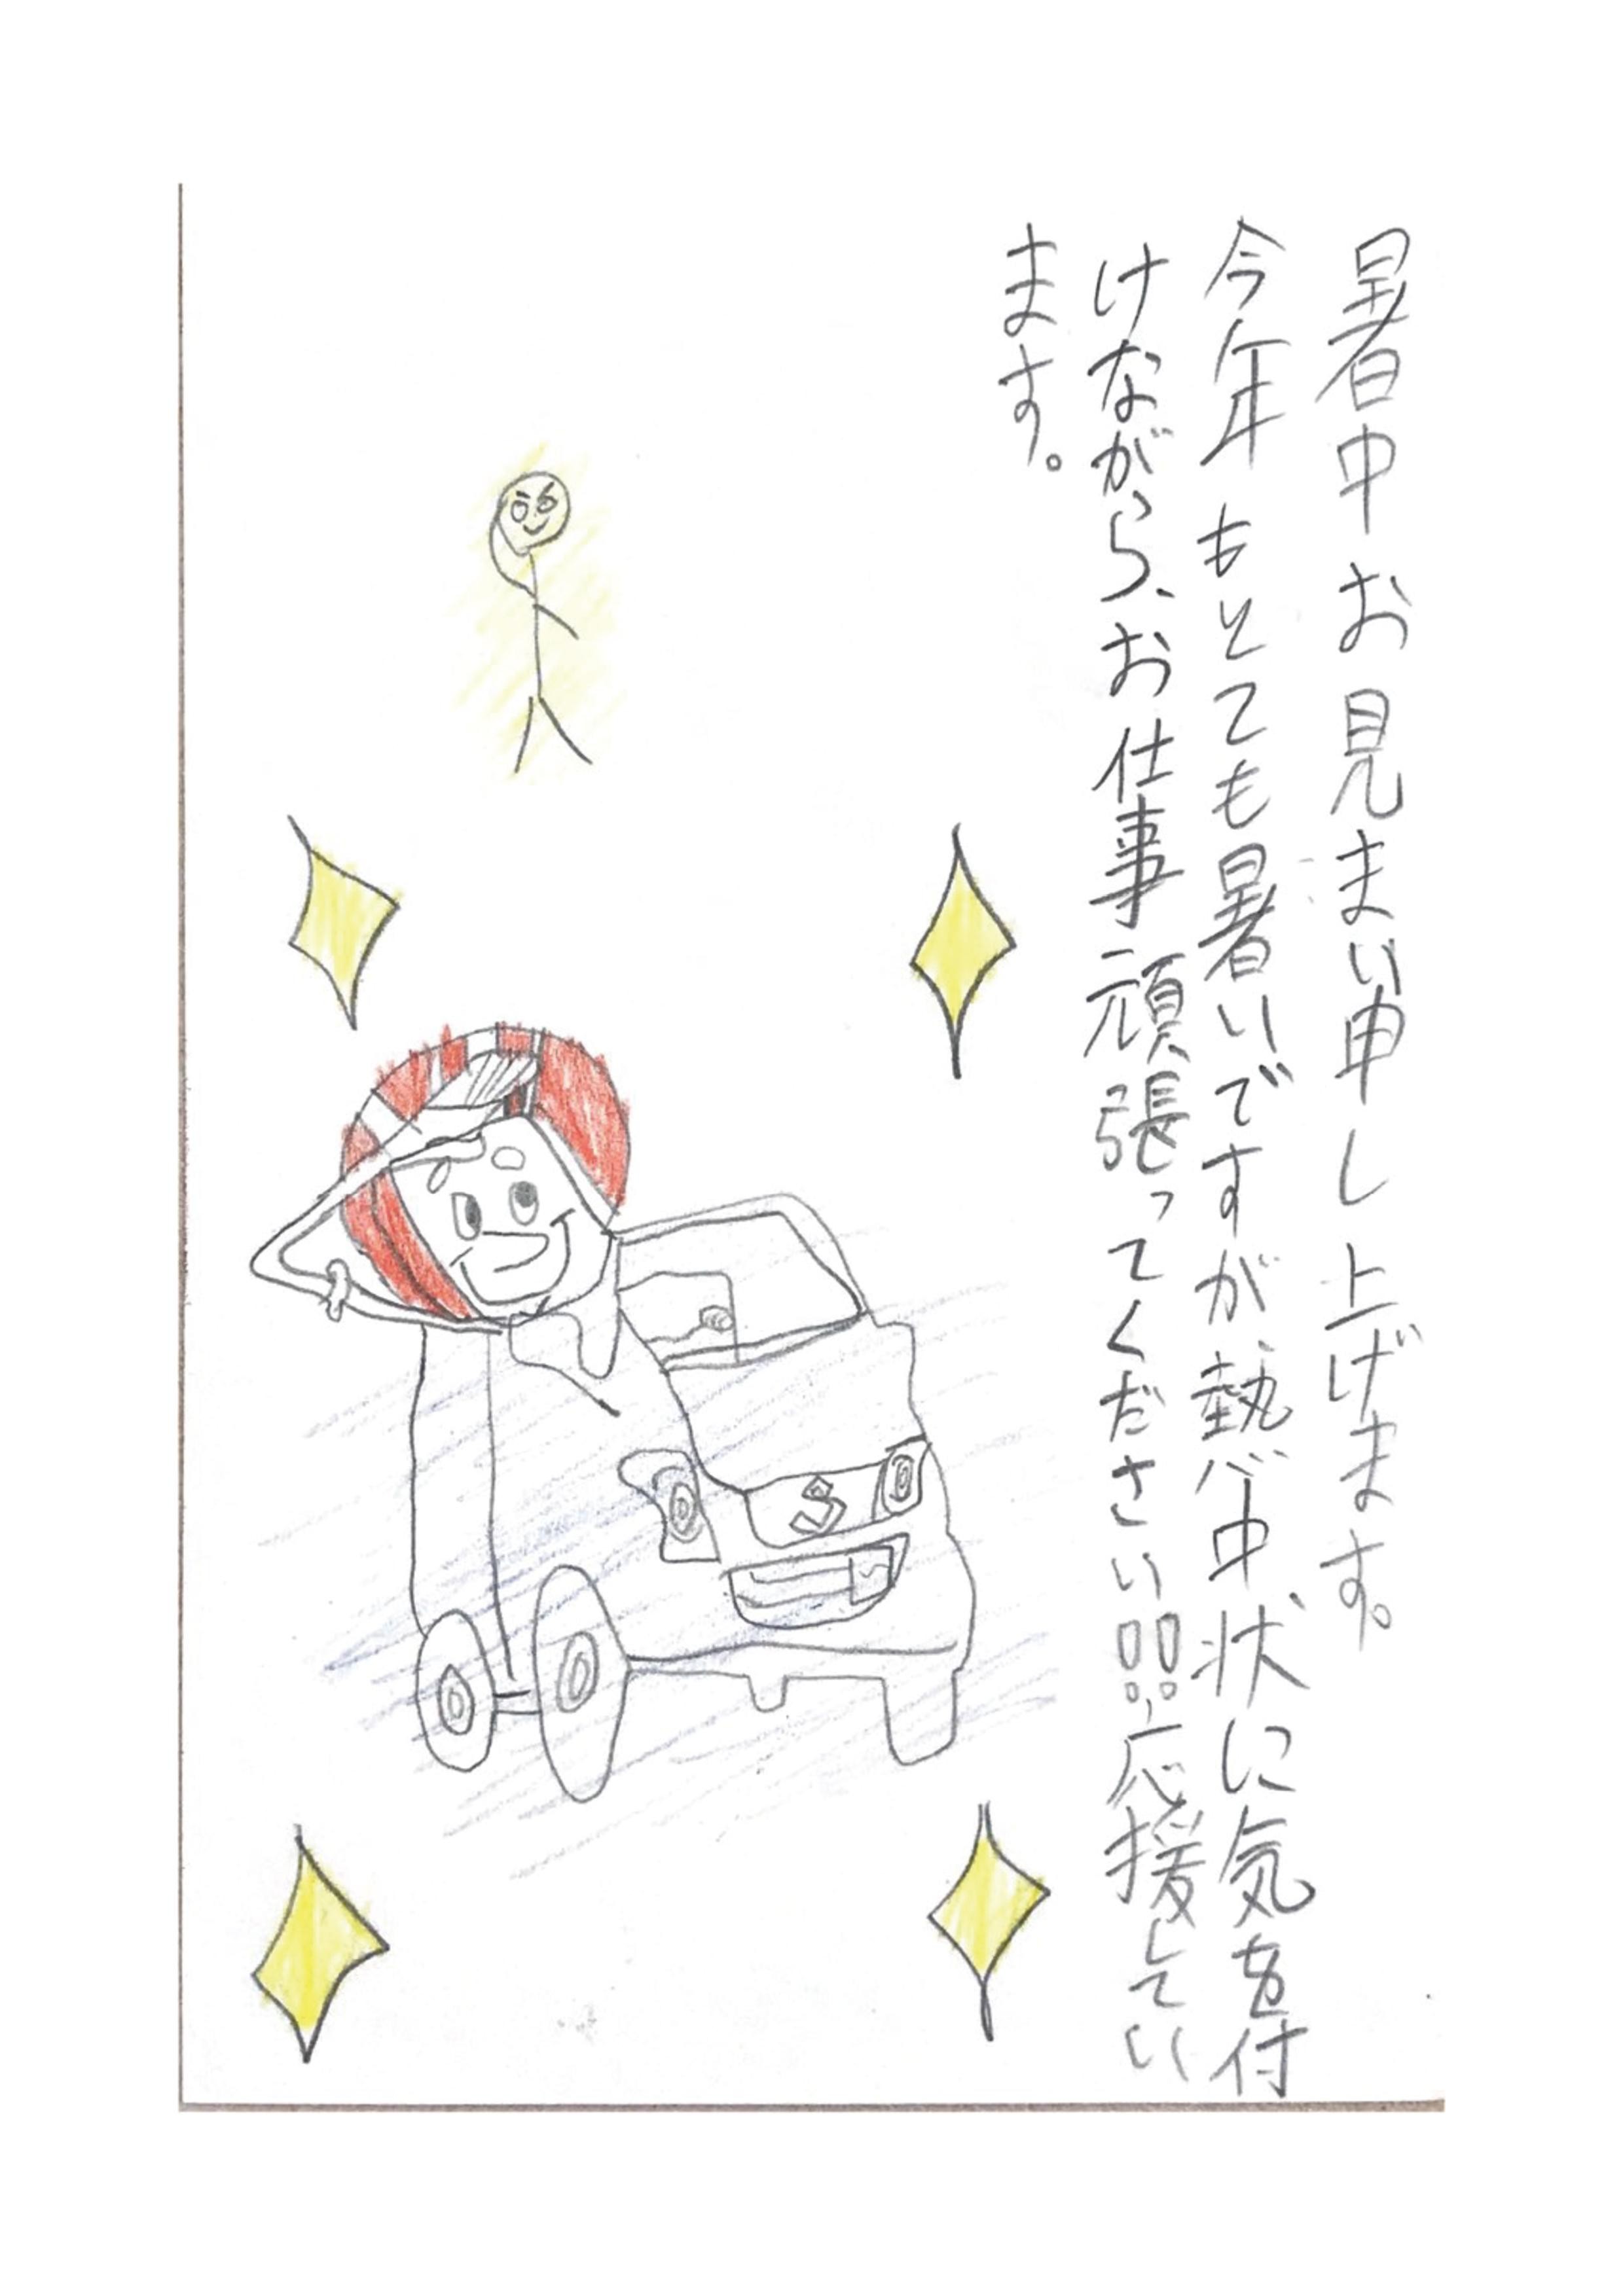 暑中お見まい申し上げます。
今年もとても暑いですが、熱中状に気を付
けながら、お仕事頑張ってください!!応援してい
ます。
S